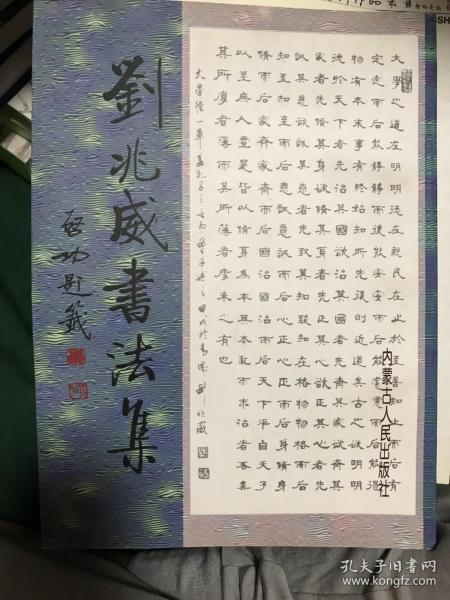 劉兆威書法集
啓功題籤
大學之道在明明德在親民在止於至善知止而后有
定定而后能靜靜而後能安安而后能慮慮而后能得
物有本末事有終始知所先後則近道矣古之欲明明
德於天下者先治其國欲治其國者先齊其家欲齊其
家者先脩其身欲脩其身者先正其心欲正其心者先
誠其意欲誠其意者先致其知致知在格物物格而后
知至知至而后意誠意誠而后心正心正而后身脩身
脩而后家齊家齊而后國治國治而后天下平自天子
以至於庶人壹是皆以脩身為本其本亂而末治者否矣
其所厚者薄而其所薄者厚未之有也
大學經一章蓋孔子之言而曾子述之 甲戌於青城 劉兆威
内蒙古人民出版社
孔夫子旧书网
www.kongfz.com